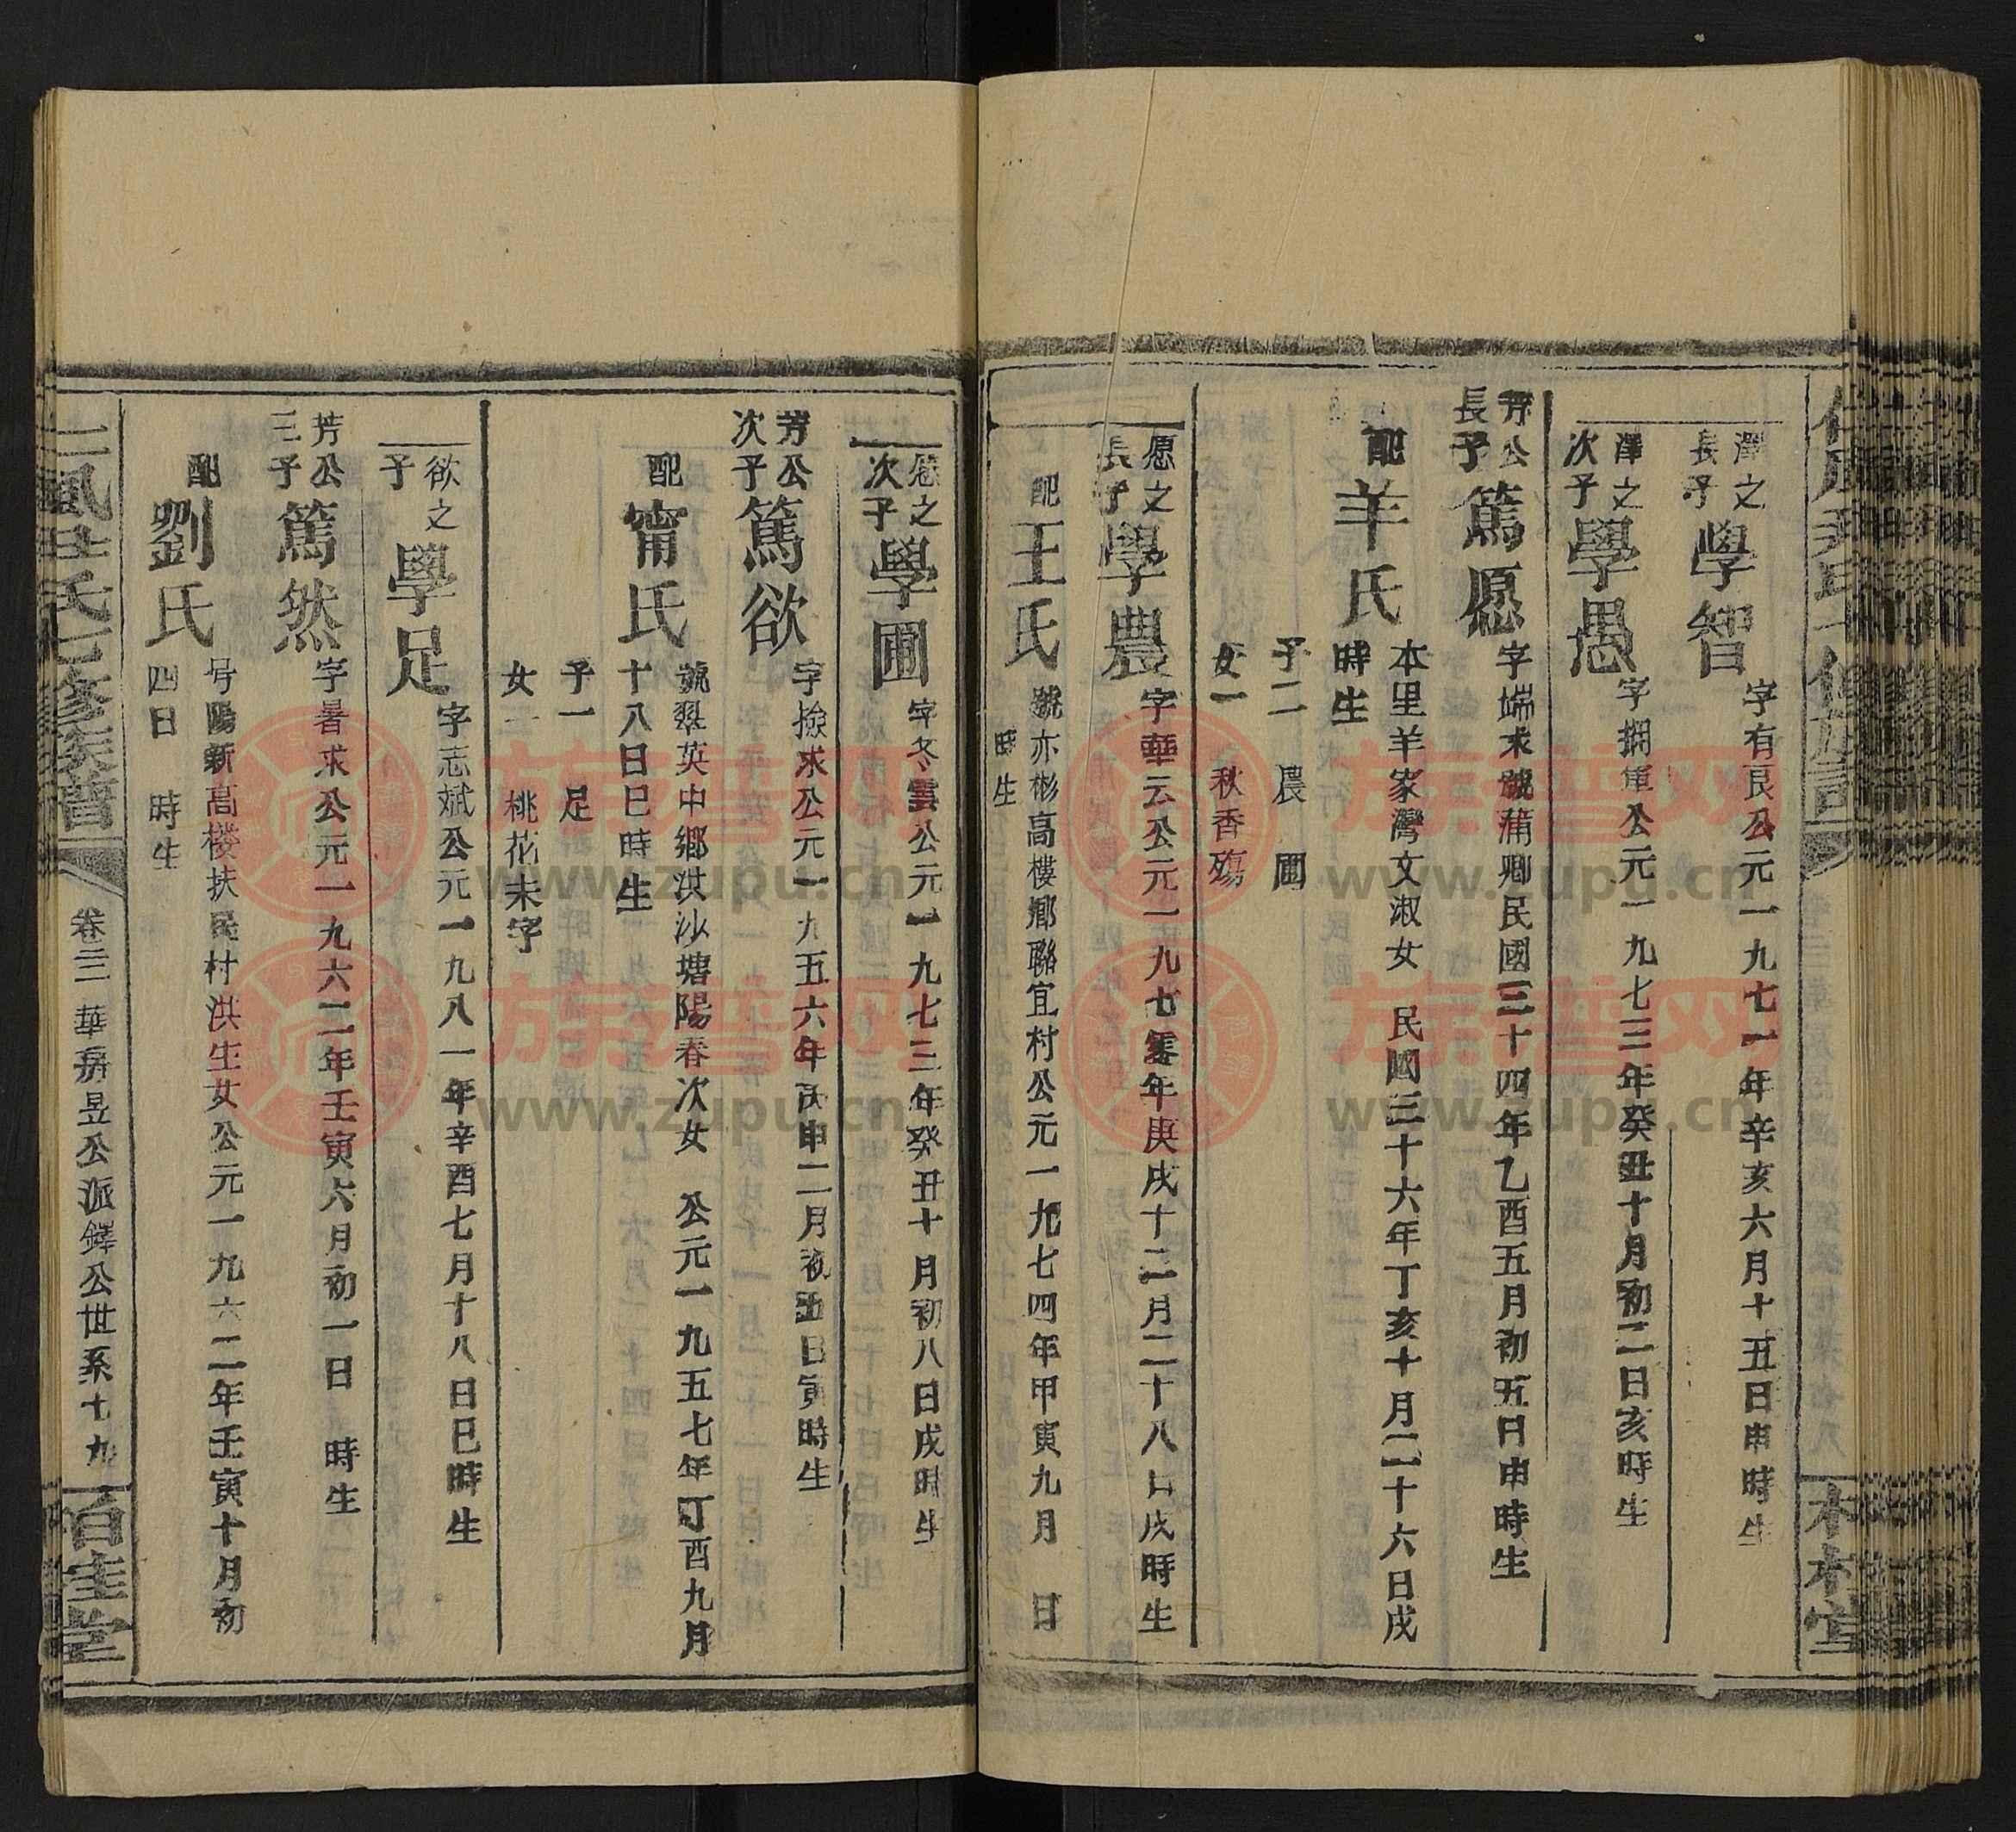 澤之
長子
學智
字有良公元一九七一年辛亥六月十五日申時生
澤之
次子
學愚
公元一九七三年癸丑十月初二日亥時生
芳公
長子
篤愿
字端求號蒲卿民國三十四年乙酉五月初五日申時生
配
羊氏
本里羊家灣文淑女 民國三十六年丁亥十月二十六日戌
時生
子二 農 圃
女一 秋香殤
愿之
長子
學農
字華云公元一九七零年庚戌十二月二十八日戌時生
配
王氏
號亦彬高樓鄉聯宜村公元一九七四年甲寅九月 日
時生
愿之
次子
學圃
字冬雲公元一九七三年癸丑十月初八日戌時生
芳公
次子
篤欲
字撿求公元一九五六年丙申二月初五日寅時生
配
甯氏
號翠英中鄉洪沙塘陽春次女 公元一九五七年丁酉九月
十八日巳時生
子一 足
女一 桃花未字
欲之
子
學足
字志斌公元一九八一年辛酉七月十八日巳時生
芳公
三子
篤然
字暑求公元一九六二年壬寅六月初一日 時生
配
劉氏
号陽新高楼扶民村洪生女公元一九六二年壬寅十月初
四日 時生
氏七修族譜
卷三 華房昱公派鐸公世系十九
百圭堂
族譜网
www.zupu.cn
族譜网
www.zupu.cn
族譜网
www.zupu.cn
族譜网
www.zupu.cn